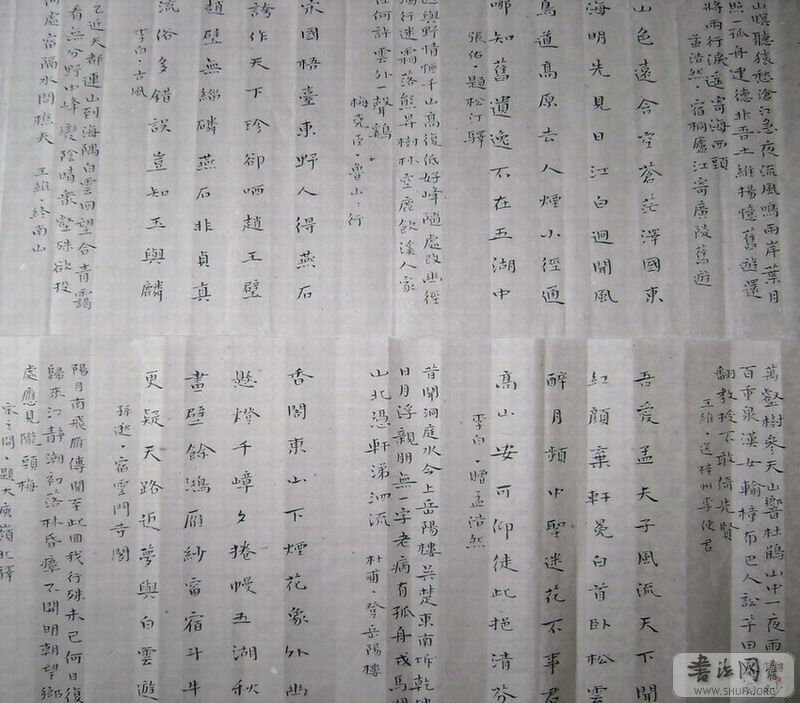 山暝聽猿愁滄江急夜流風鳴兩岸葉月
照一孤舟建德非吾土維揚憶舊遊還
將兩行淚遙寄海西頭
孟浩然·宿桐廬江寄廣陵舊遊
山色遠含空蒼茫澤國東
海明先見日江白迥聞風
鳥道高原去人煙小徑通
哪知舊遺逸不在五湖中
張佑·題松汀驛
適與野情愜千山高復低好峰隨處改幽徑
獨行迷霜落熊昇樹林空鹿飲溪人家
在何許雲外一聲鷄
梅堯臣·魯山々行
宋國梧臺東野人得燕石
誇作天下珍卻哂趙王璧
趙璧無緇磷燕石非貞真
流俗多錯誤豈知玉與麟
李白·古風
乙近天都連山到海隅白雲回望合青靄
看無分野中峰變陰晴衆壑殊欲投
何處宿隔水問樵夫 王維·終南山
萬壑樹參天山響杜鵑山中一夜雨
百重泉漢女輸橦布巴人訟芋田
翻教授不敢倚先賢
王維·送梓州李使君
吾愛孟夫子風流天下聞
紅顏棄軒冕白首卧松雲
醉月頻中聖迷花不事君
高山安可仰徒此挹清芬
李白·贈孟浩然
昔聞洞庭水今上岳陽樓吳楚東南坼乾坤
日月浮親朋無一字老病有孤舟戎馬關
山北憑軒涕泗流 杜甫·登岳陽樓
香閣東山下煙花象外幽
懸燈千嶂夕捲幔五湖秋
畫壁餘鴻雁紗窗宿斗牛
更疑天路近夢與白雲遊
孫逖·宿雲門寺閣
陽月南飛雁傳聞至此回我行殊未已何日復
歸來江靜潮初落林昏瘴不開明朝望鄉
處應見隴頭梅
宋之問·題大庾嶺北驛
書法网
WWW.SHUFAJ.ORG